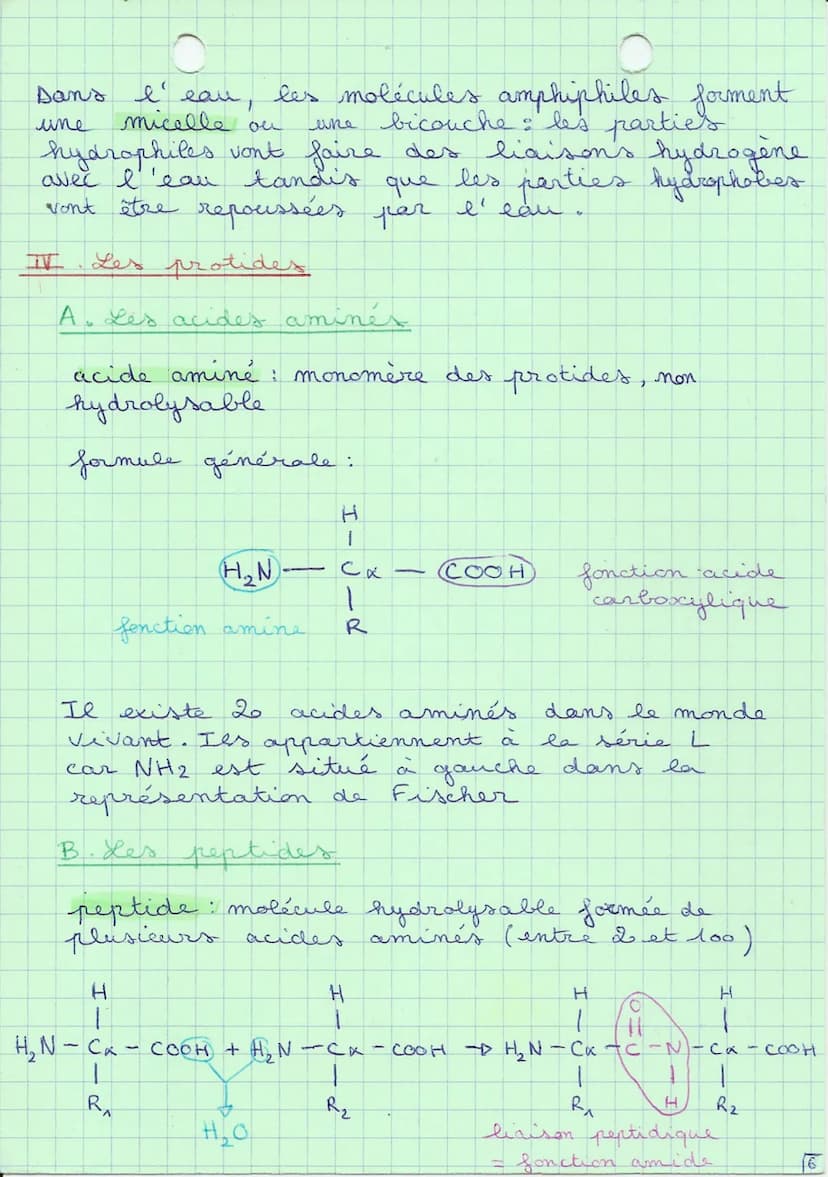 Dans l'eau, les molécules amphiphiles forment
une micelle ou une bicouche : les parties
hydrophiles vont faire des liaisons hydrogène
avec l'eau tandis que les parties hydrophobes
vont être repoussées par l'eau.
IV. Les protides
A. Les acides aminés
acide aminé : monomère des protides, non
hydrolysable
formule générale :
H
|
H₂N — Cα — COOH fonction acide
carboxylique
|
fonction amine R
Il existe 20 acides aminés dans le monde
vivant. Ils appartiennent à la série L
car NH2 est situé à gauche dans la
représentation de Fischer
B. Les peptides
peptide : molécule hydrolysable formée de
plusieurs acides aminés (entre 2 et 100)
H H H O H
| | | || |
H₂N – Cα – COOH + H₂N – Cα – COOH → H₂N – Cα – C – N – Cα – COOH
| | | | |
R₁ R₂ R₁ H R₂
H₂O
liaison peptidique
= fonction amide
6